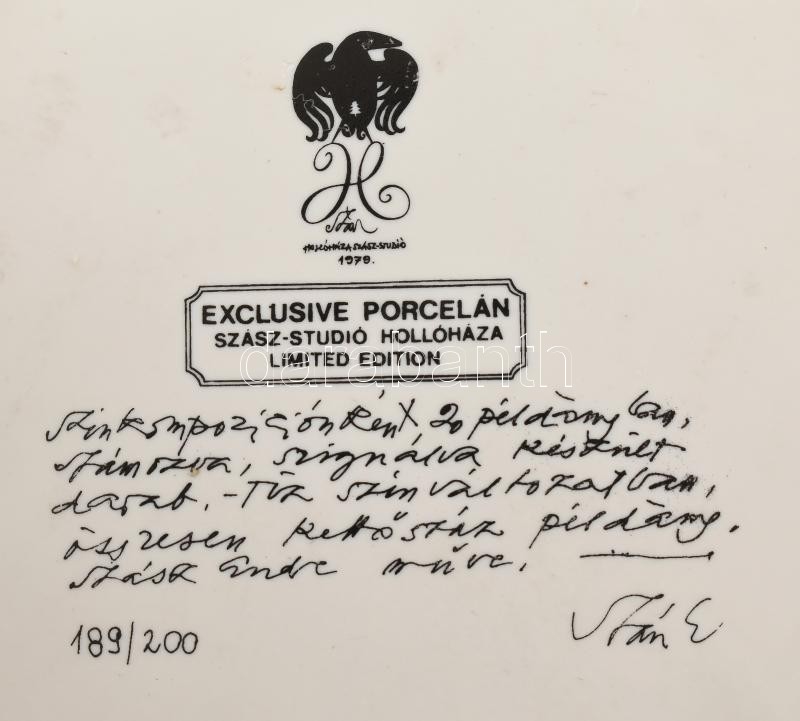 Szász
HOLLÓHÁZA SZÁSZ-STUDIÓ
1979.
EXCLUSIVE PORCELÁN
SZÁSZ-STUDIÓ HOLLÓHÁZA
LIMITED EDITION
darabanth
Szinkompoziciónként 20 példányban,
számozva, szignálva készült
darab. - Tiz szinváltozatban,
összesen kettőszáz példány.
Szász Endre műve.
189/200
Szász E